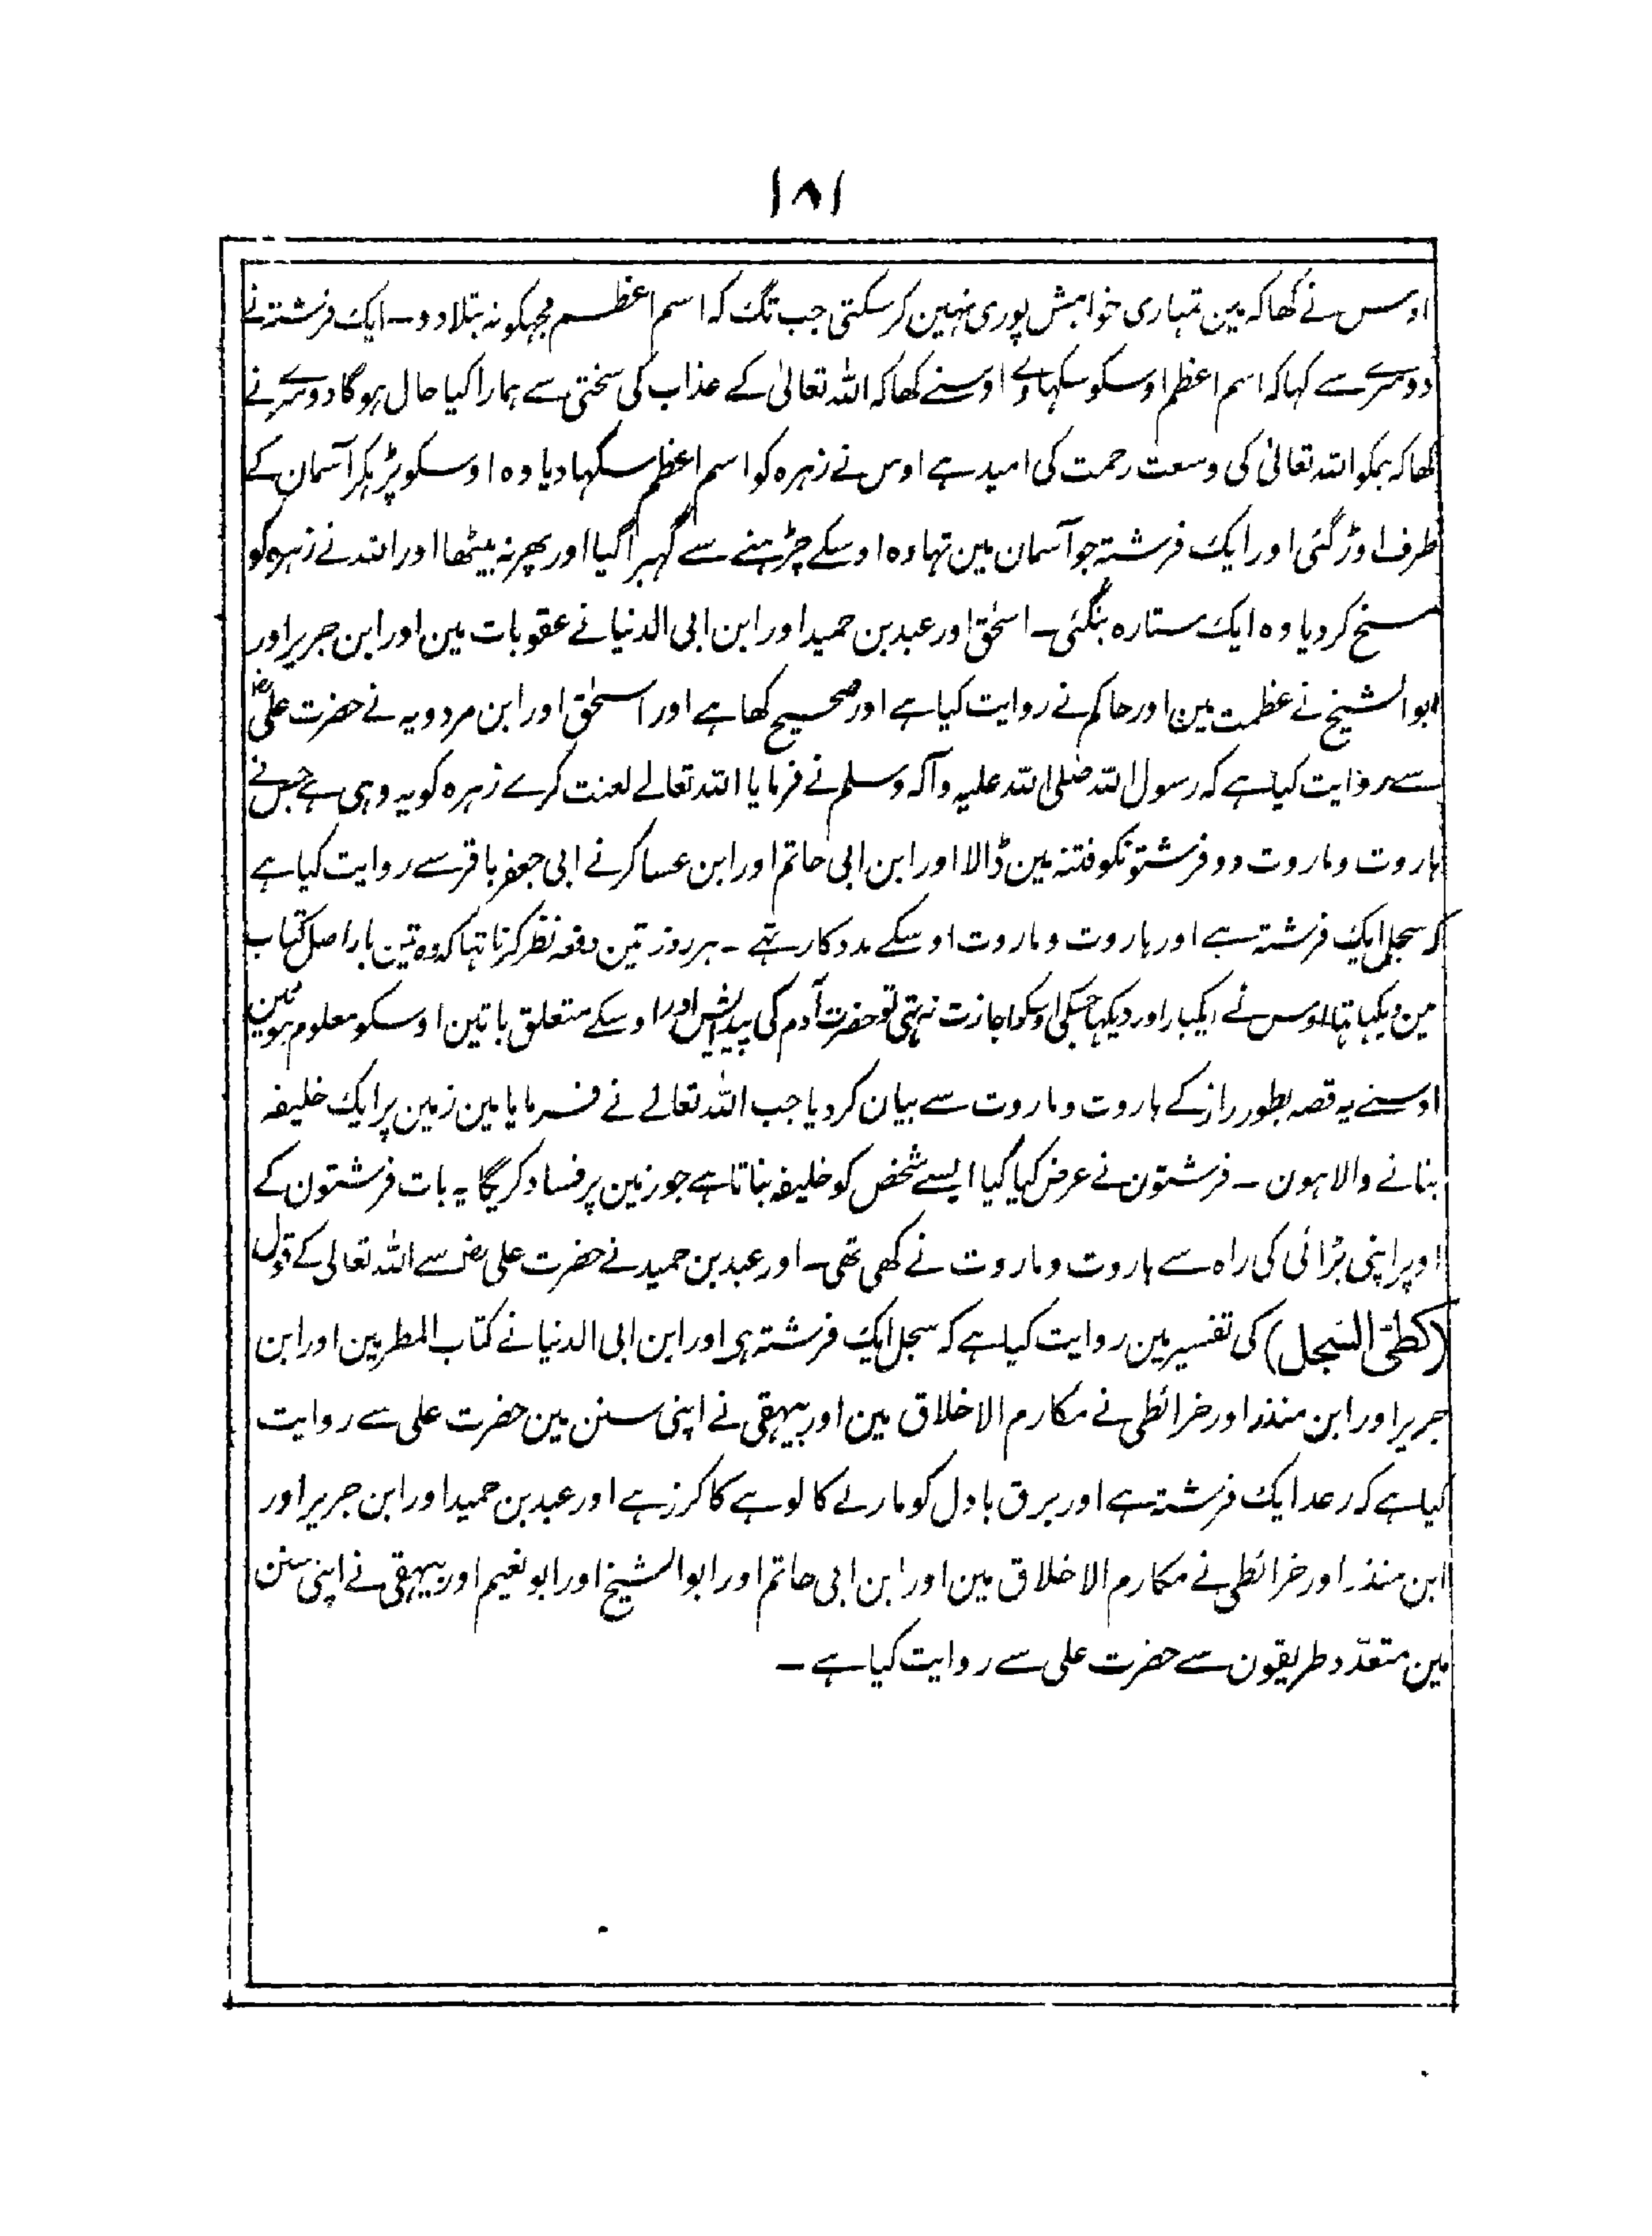 ۱۸۱
اوس نے کھا کہ مین تمہاری خواہش پوری نہین کرسکتی جب تک کہ اسم اعظم مجہکو نہ بتلا دو۔ ایک فرشتہ نے
دوسرے سے کہا کہ اسم اعظم اوسکو سکہا دے اوسنے کھا کہ اللہ تعالیٰ کے عذاب کی سختی سے ہمارا کیا حال ہوگا دوسرے نے
کھا کہ ہمکو اللہ تعالیٰ کی وسعت رحمت کی امید ہے اوس نے زہرہ کو اسم اعظم سکہا دیا وہ اوسکو پڑہکر آسمان کے
طرف اوڑ گئی اور ایک فرشتہ جو آسمان مین تہا وہ اوسکے چڑہنے سے گہبرا گیا اور پھر نہ بیٹھا اور اللہ نے زہرہ کو
مسخ کردیا وہ ایک ستارہ بنگئی۔ اسحٰق اور عبد بن حمید اور ابن ابی الدنیا نے عقوبات مین اور ابن جریر اور
ابو الشیخ نے عظمت مین اور حاکم نے روایت کیا ہے اور صحیح کھا ہے اور اسحٰق اور ابن مردویہ نے حضرت علیؓ
سے روایت کیا ہے کہ رسول اللہ صلی اللہ علیہ وآلہ وسلم نے فرمایا اللہ تعالے لعنت کرے زہرہ کو یہ وہی ہے جس نے
ہاروت و ماروت دو فرشتونکو فتنہ مین ڈالا اور ابن ابی حاتم اور ابن عساکر نے ابی جعفر باقر سے روایت کیا ہے
کہ سجل ایک فرشتہ ہے اور ہاروت و ماروت اوسکے مددکار تہے ۔ ہر روز تین دفعہ نظر کرنا تہا کہ وہ تین بار اصل کتاب
مین دیکہتا تہا اوس نے ایکبار اور دیکہا جسکی اوسکو اجازت نہتی تو حضرت آدم کی پیدائش اور اوسکے متعلق باتین اوسکو معلوم ہوئین
اوسنے یہ قصہ بطور راز کے ہاروت و ماروت سے بیان کردیا جب اللہ تعالے نے فرمایا مین زمین پر ایک خلیفہ
بنانے والا ہون ۔ فرشتون نے عرض کیا کیا ایسے شخص کو خلیفہ بناتا ہے جو زمین پر فساد کریگا یہ بات فرشتون کے
اوپر اپنی بڑائی کی راہ سے ہاروت و ماروت نے کھی تھی۔ اور عبد بن حمید نے حضرت علی رض سے اللہ تعالی کے قول
(کطیّ السّجل) کی تفسیر مین روایت کیا ہے کہ سجل ایک فرشتہ ہی اور ابن ابی الدنیا نے کتاب المطر مین اور ابن
جریر اور ابن منذر اور خرائطی نے مکارم الاخلاق مین اور بیہقی نے اپنی سنن مین حضرت علی سے روایت
کیا ہے کہ رعد ایک فرشتہ ہے اور برق بادل کو مارنے کا لوہے کا کرز ہے اور عبد بن حمید اور ابن جریر اور
ابن منذر اور خرائطی نے مکارم الاخلاق مین اور ابن ابی حاتم اور ابو الشیخ اور ابو نعیم اور بیہقی نے اپنی سنن
مین متعدّد طریقون سے حضرت علی سے روایت کیا ہے ۔